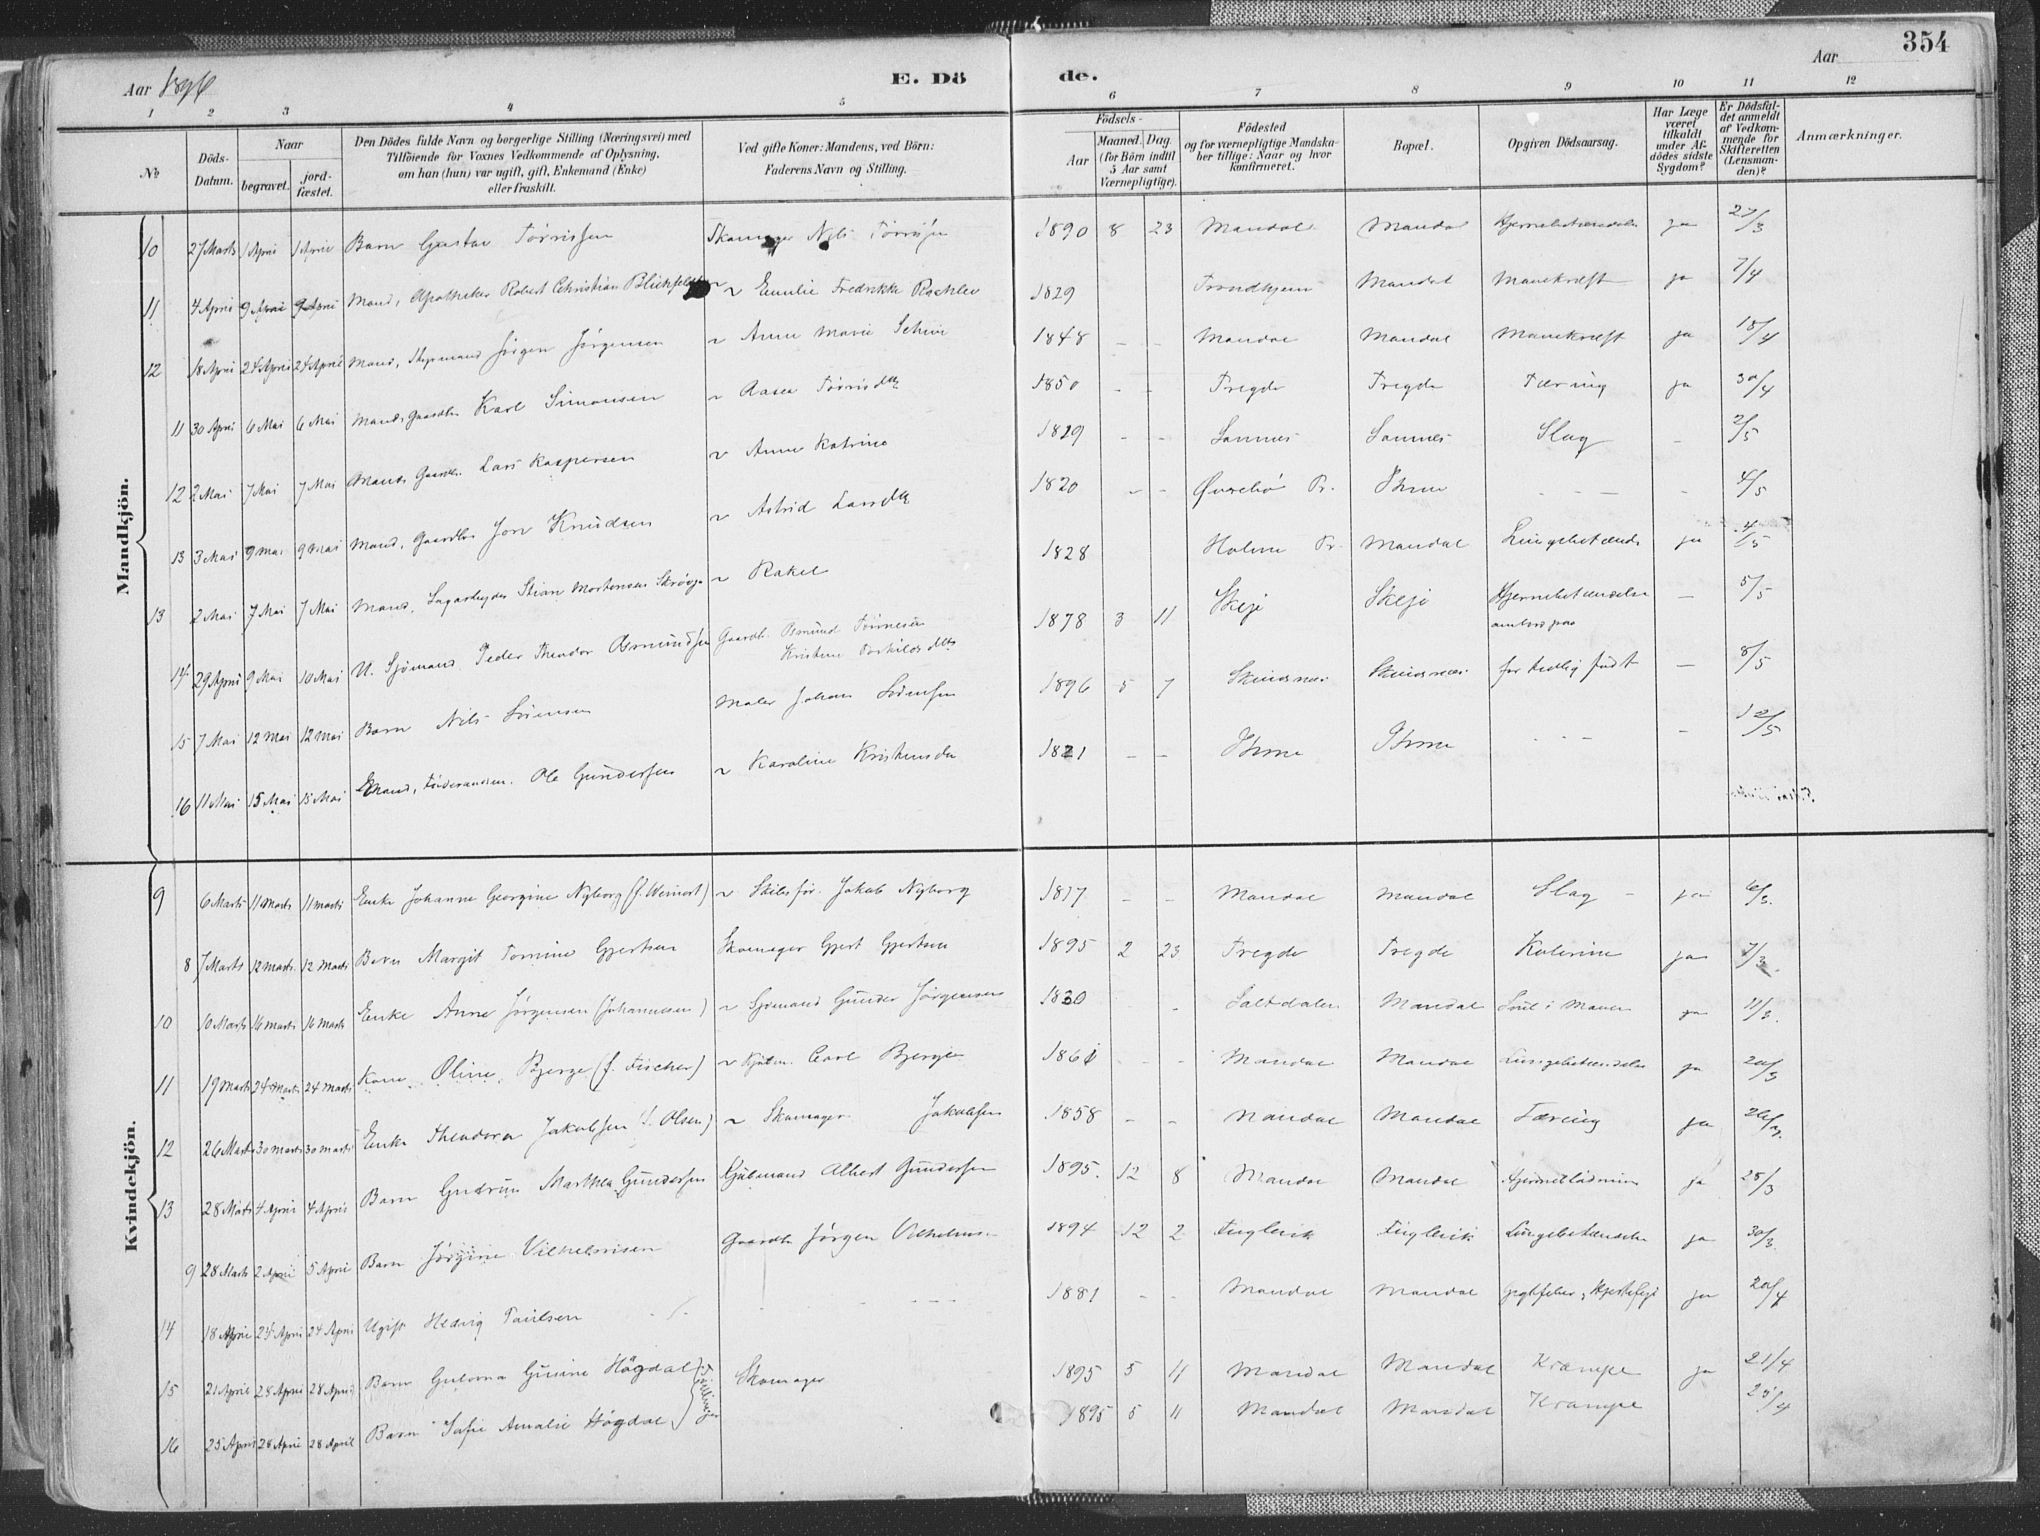 354
Aar 1896 E. Dö de. Aar
1 2 3 4 5 6 7 8 9 10 11 12
No
Döds-Datum.
Naar
begravet.
jord-fæstet.
Den Dödes fulde Navn og borgerlige Stilling (Næringsvei) med
Tilföiende for Voxnes Vedkommende af Oplysning,
om han (hun) var ugift, gift, Enkemand (Enke)
eller fraskilt.
Ved gifte Koner: Mandens, ved Börn:
Faderens Navn og Stilling.
Födsels-
Aar
Maaned. Dag.
(for Börn indtil
5 Aar samt
Værnepligtige).
Födested
og for værnepligtige Mandska-
ber tillige: Naar og hvor
konfirmeret.
Bopæl.
Opgiven Dödsaarsag.
Har Læge
været
tilkaldt
under Af-
dödes sidste
Sygdom?
Er Dödsfal-
det anmeldt
af Vedkom-
mende for
Skifteretten
(Lensman-
den)?
Anmærkninger.
Mandkjön.
10 27 Marts 1 April 1 April Barn Gustav Tørrissen Skomager Nils Tørrisen 1890 8 23 Mandal Mandal Hjernebetændelse ja 27/3
11 4 April 9 April 9 April Mand, Apotheker Robert Christian Blichfeldt ~ Emilie Fredrikke 1829 Trondhjem Mandal Mavekræft ja 7/4
12 18 April 24 April 24 April Mand, Jørgen Jørgensen ~ Anne Marie 1848 - - Mandal Mandal Mavekræft ja 18/4
11 30 April 6 Mai 6 Mai Mand, Gaardbr. Karl Simonsen ~ Aasea Tørrisdtr 1850 - - Tregde Tregde Tæring ja 30/4
12 2 Mai 7 Mai 7 Mai Mand, Gaardbr. Lars Kaspersen ~ Anne Katrine 1829 - - Sannes Sannes Slag - 2/5
13 3 Mai 9 Mai 9 Mai Mand, Gaardbr. Jon Knudsen ~ Astrid Larsdtr 1820 - - Øvrebø Pr. - - - - 4/5
13 2 Mai 7 Mai 7 Mai Mand, Sagarbeyder Stian Mortensen ~ Rakel 1828 Holme Pr. Mandal Lungebetænd. ja 4/5
14 29 April 9 Mai 10 Mai U. Sjømand Peder Theodor Osmundsen Gaardb. Osmund Tønnesen 1878 3 11 Hjernebetændelse - 5/5
15 7 Mai 12 Mai 12 Mai Barn Nils Sørensen Maler Johan Sørensen 1896 5 7 for tidlig født - 8/5
16 11 Mai 15 Mai 15 Mai Ole Gundersen ~ Karoline 1821 - - - - - - 12/5
Kvindekjön.
9 6 Marts 11 Marts 11 Marts Enke Johanne Georgine Nyborg (f. Weinort) ~ Skibsfør. Jakob Nyborg 1817 - - Mandal Mandal Slag - ja 6/3
8 7 Marts 12 Marts 12 Marts Barn Margit Tomine Gjertsen Skomager Gjert Gjertsen 1895 2 23 Tregde Tregde Kolerine ja 7/3
10 10 Marts 16 Marts 16 Marts Enke Anne Jørgensen (Johannessen) ~ Sjømand Gunder Jørgensen 1830 - - Saltdalen Mandal ja 11/3
11 19 Marts 24 Marts 24 Marts Kone Oline Bjerge (f. Fischer) ~ Carl Bjerge 1861 - - Mandal Mandal Lungebetændelse ja 20/3
12 26 Marts 30 Marts 30 Marts Enke Theodora Jakobsen (f. Olsen) ~ Skomager Jakobsen 1858 - - Mandal Mandal Tæring ja 26/3
13 28 Marts 4 April 4 April Barn Gudrun Marthea Gundersen Sjømand Albert Gundersen 1895. 12 8 Mandal Mandal ja 28/3
9 28 Marts 2 April 5 April Barn Jørgine Vilhelmsen Gaardbr Jørgen Vilhelms. 1894 12 2 Fuglevik Fuglevik Lungebetændelse ja 30/3
14 18 April 24 April 24 April Ugift Hedvig Poulsen - - - 1881 - - Mandal Mandal Gigtfeber, Hjertefejl ja 20/4
15 21 April 28 April 28 April Barn Gusine Høgdal Skomager 1895 5 11 Mandal Mandal Krampe ja 21/4
16 25 April 28 April 28 April Barn Sofie Amalie Høgdal 1895 5 11 Mandal Mandal Krampe 25/4
Tvillinger